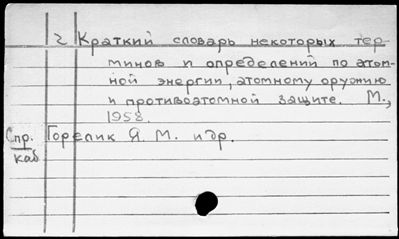 2 Краткий словарь некоторых тер-
минов и определений по атом-
ной энергии, атомному оружию
и противоатомной защите. М.,
1958.
Спр. Горелик Я. М. и др.
каб